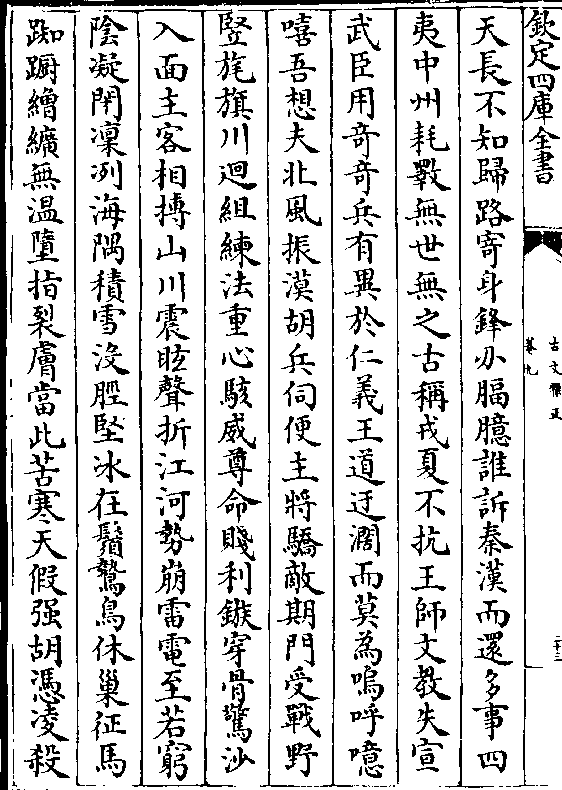 欽定四庫全書
古文雅正
卷九
二十三
天長不知歸路寄身鋒刃腷臆誰訴秦漢而還多事四
夷中州耗斁無世無之古稱戎夏不抗王師文教失宣
武臣用奇奇兵有異於仁義王道迂濶而莫為嗚呼噫
嘻吾想夫北風振漠胡兵伺便主將驕敵期門受戰野
豎旄旗川迴組練法重心駭威尊命賤利鏃穿骨驚沙
入面主客相搏山川震眩聲折江河勢崩雷電至若窮
陰凝閉凜冽海隅積雪沒脛堅冰在鬚鷙鳥休巢征馬
踟蹰繒纊無温墮指裂膚當此苦寒天假强胡馮凌殺